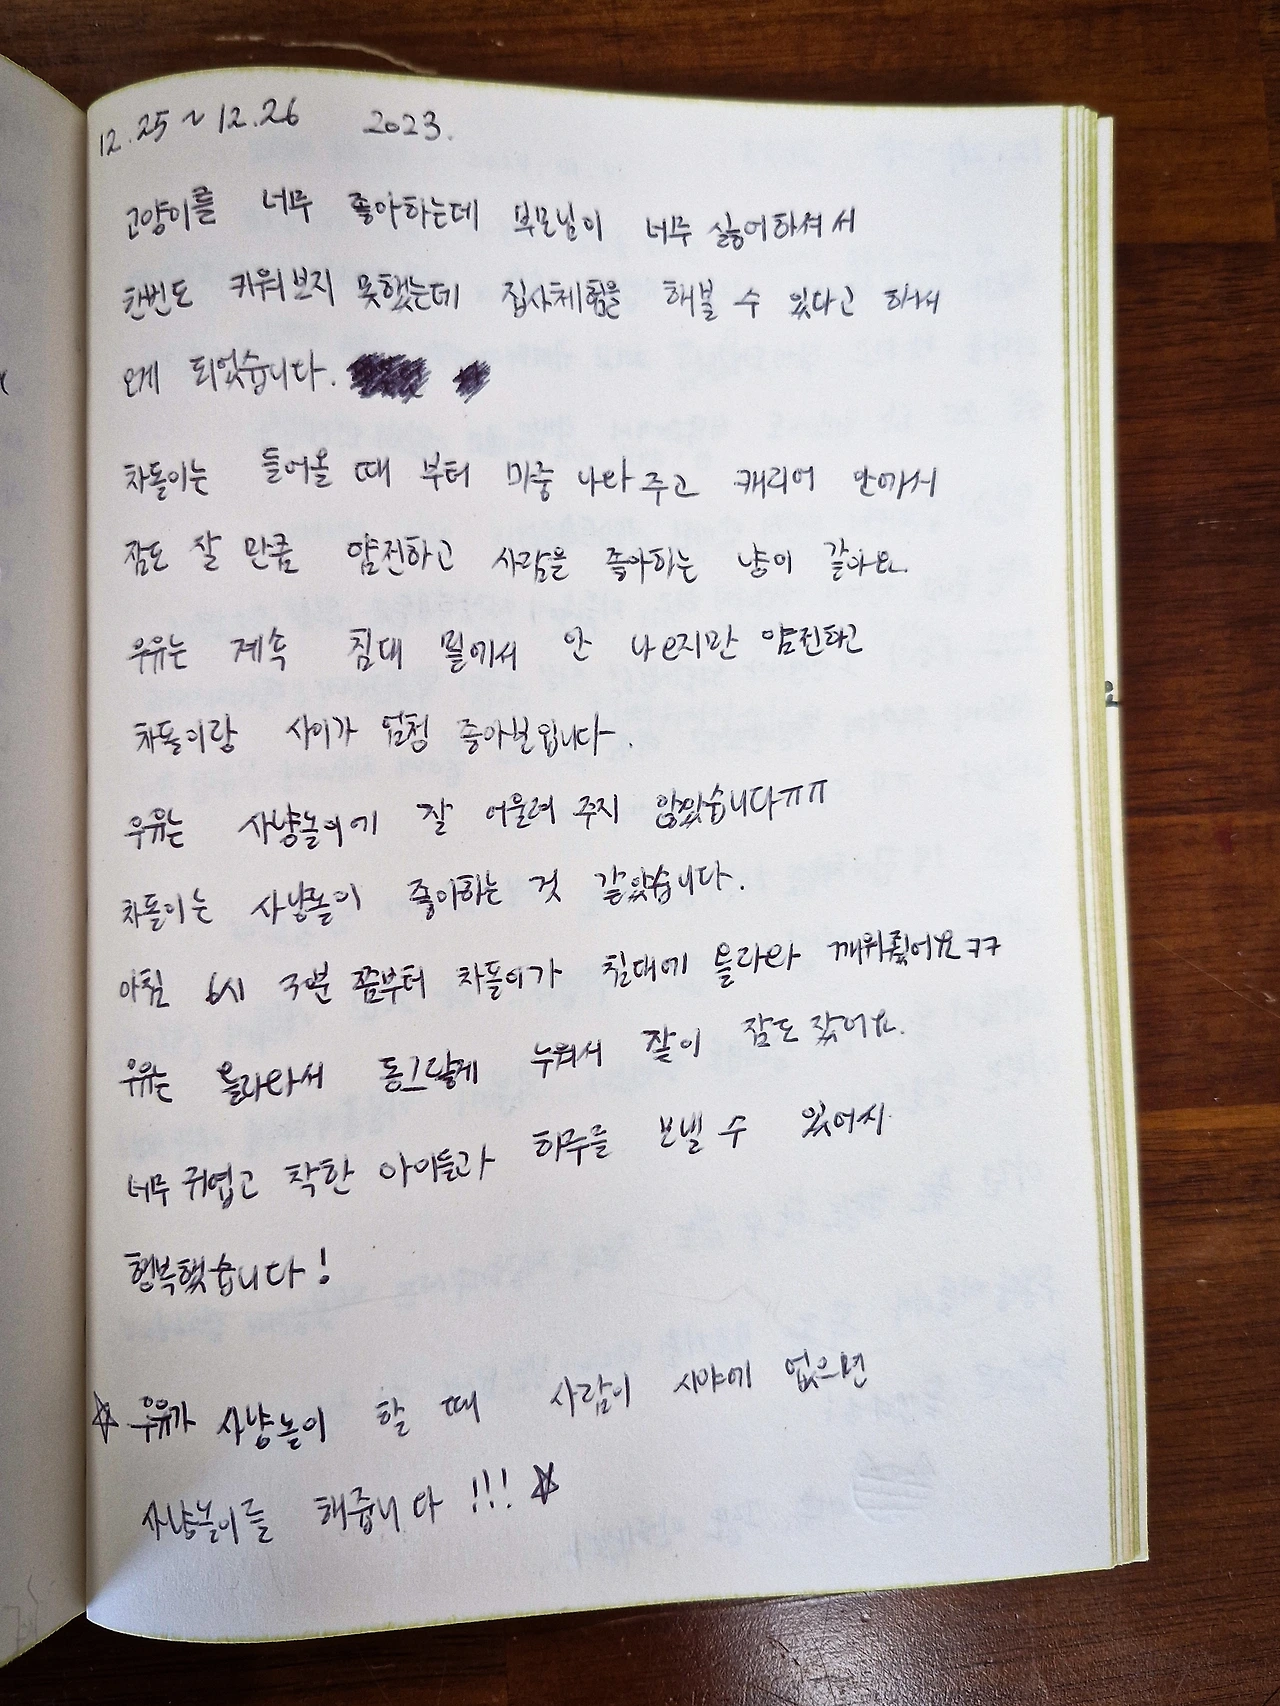 12.25 ~ 12.26 2023.
고양이를 너무 좋아하는데 부모님이 너무 싫어하셔서
한번도 키워보지 못했는데 집사체험을 해볼 수 있다고 해서
오게 되었습니다.
차돌이는 들어올 때 부터 마중 나와 주고 캐리어 안에서
잠도 잘 만큼 얌전하고 사람을 좋아하는 냥이 같아요.
우유는 계속 침대 밑에서 안 나오지만 얌전하고
차돌이랑 사이가 엄청 좋아보입니다.
우유는 사냥놀이에 잘 어울려 주지 않았습니다ㅠㅠ
차돌이는 사냥놀이 좋아하는 것 같았습니다.
아침 6시 30분 쯤부터 차돌이가 침대에 올라와 깨워줬어요ㅋㅋ
우유는 올라와서 동그랗게 누워서 같이 잠도 잤어요.
너무 귀엽고 착한 아이들과 하루를 보낼 수 있어서
행복했습니다!
☆ 우유가 사냥놀이 할 때 사람이 시야에 없으면
사냥놀이를 해줍니다 !!! ☆